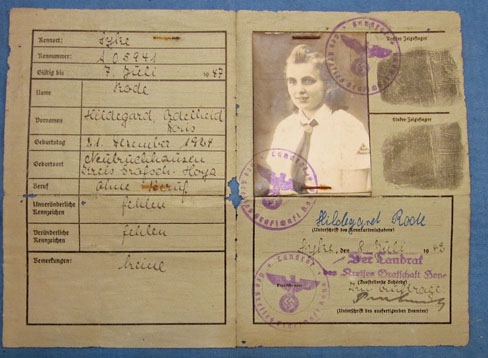 Kennort: Syke
Kennnummer: A 05941
Gültig bis 7. Juli 1947
Name Rode
Vornamen Hildegard, Adelheid
Doris
Geburtstag 31. Dezember 1927
Geburtsort Neubruchhausen
Kreis Grafsch. Hoya
Beruf ohne Beruf
Unveränderliche Kennzeichen fehlen
Veränderliche Kennzeichen fehlen
Bemerkungen: keine
Rechter Zeigefinger
Linker Zeigefinger
Landrat
Hildegard Rode
(Unterschrift des Kennkarteninhabers)
Syke, den 8. Juli 1942
Der Landrat
des Kreises Grafschaft Hoya
(Ausstellende Behörde)
(Unterschrift des ausfertigenden Beamten)